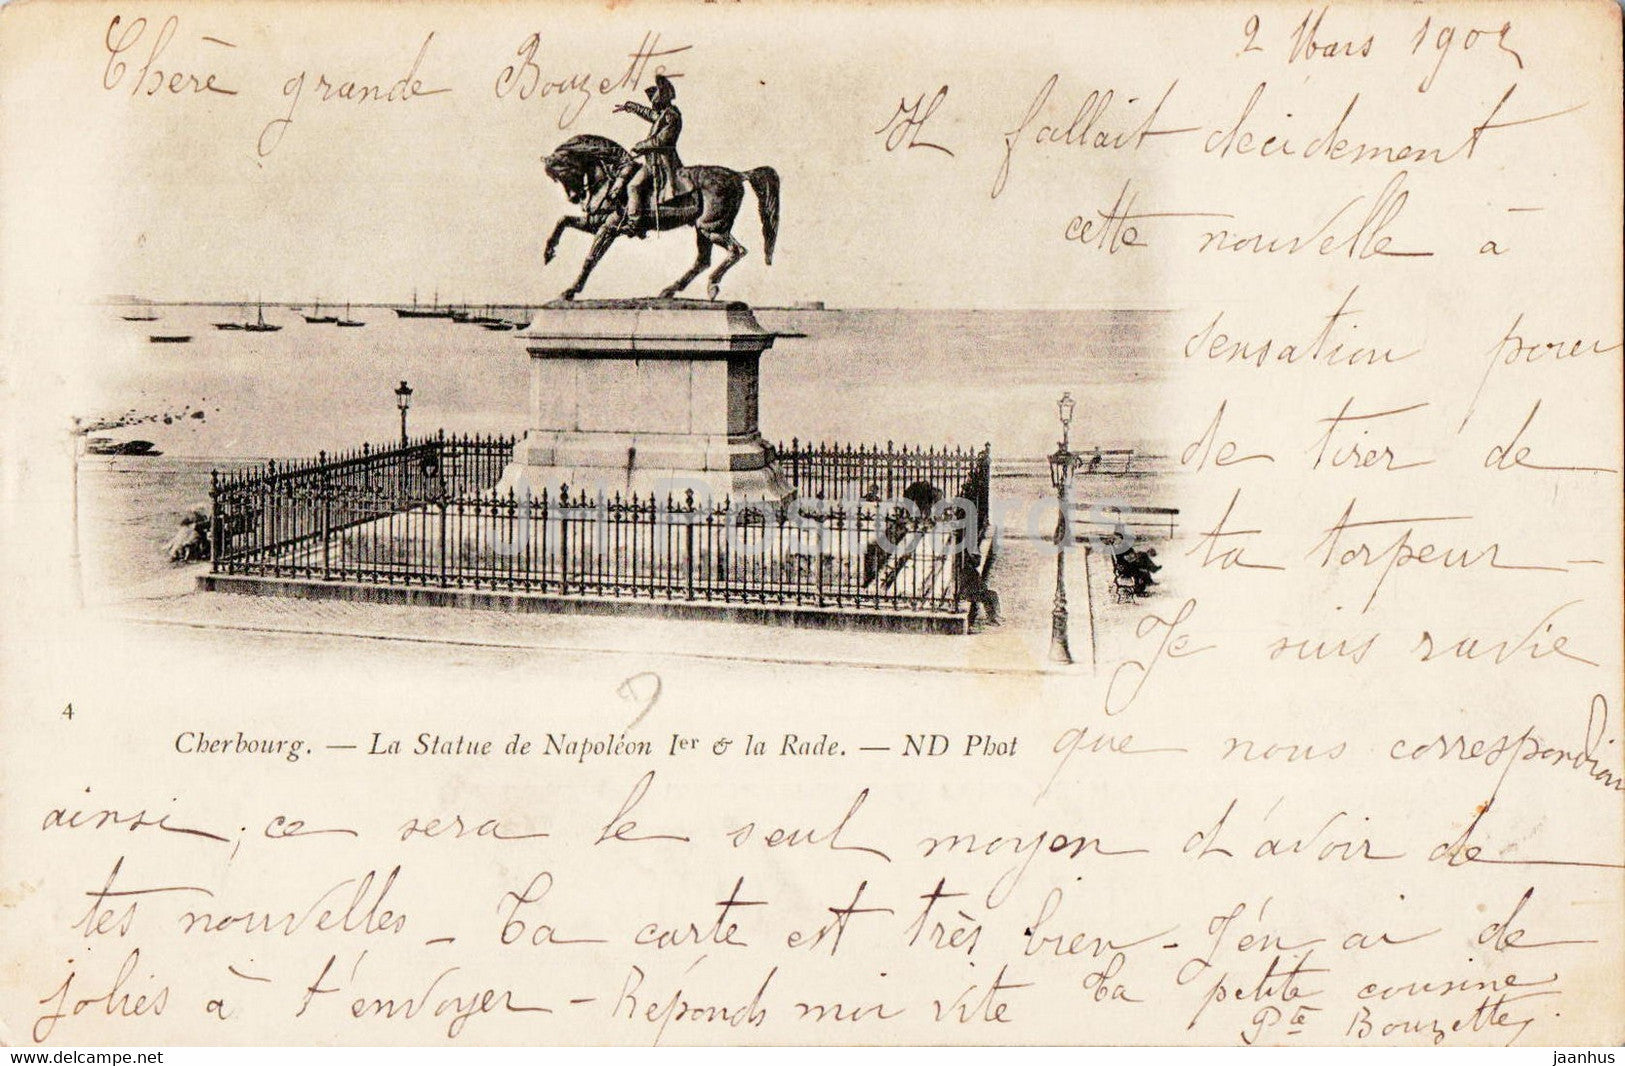 2 Mars 1902
Chère grande Bouzette
Il fallait decidement
cette nouvelle à
sensation pour
de tirer de
ta torpeur -
Je suis ravie
4
Cherbourg. — La Statue de Napoléon Ier & la Rade. — ND Phot
que nous correspondions
ainsi, ce sera le seul moyen d'avoir de
tes nouvelles - Ta carte est très bien - J'en ai de
jolies à t'envoyer - Réponds moi vite Ta petite cousine
Pte Bouzette.
JH Postcards
https://jhpostcards.com
jaanhus